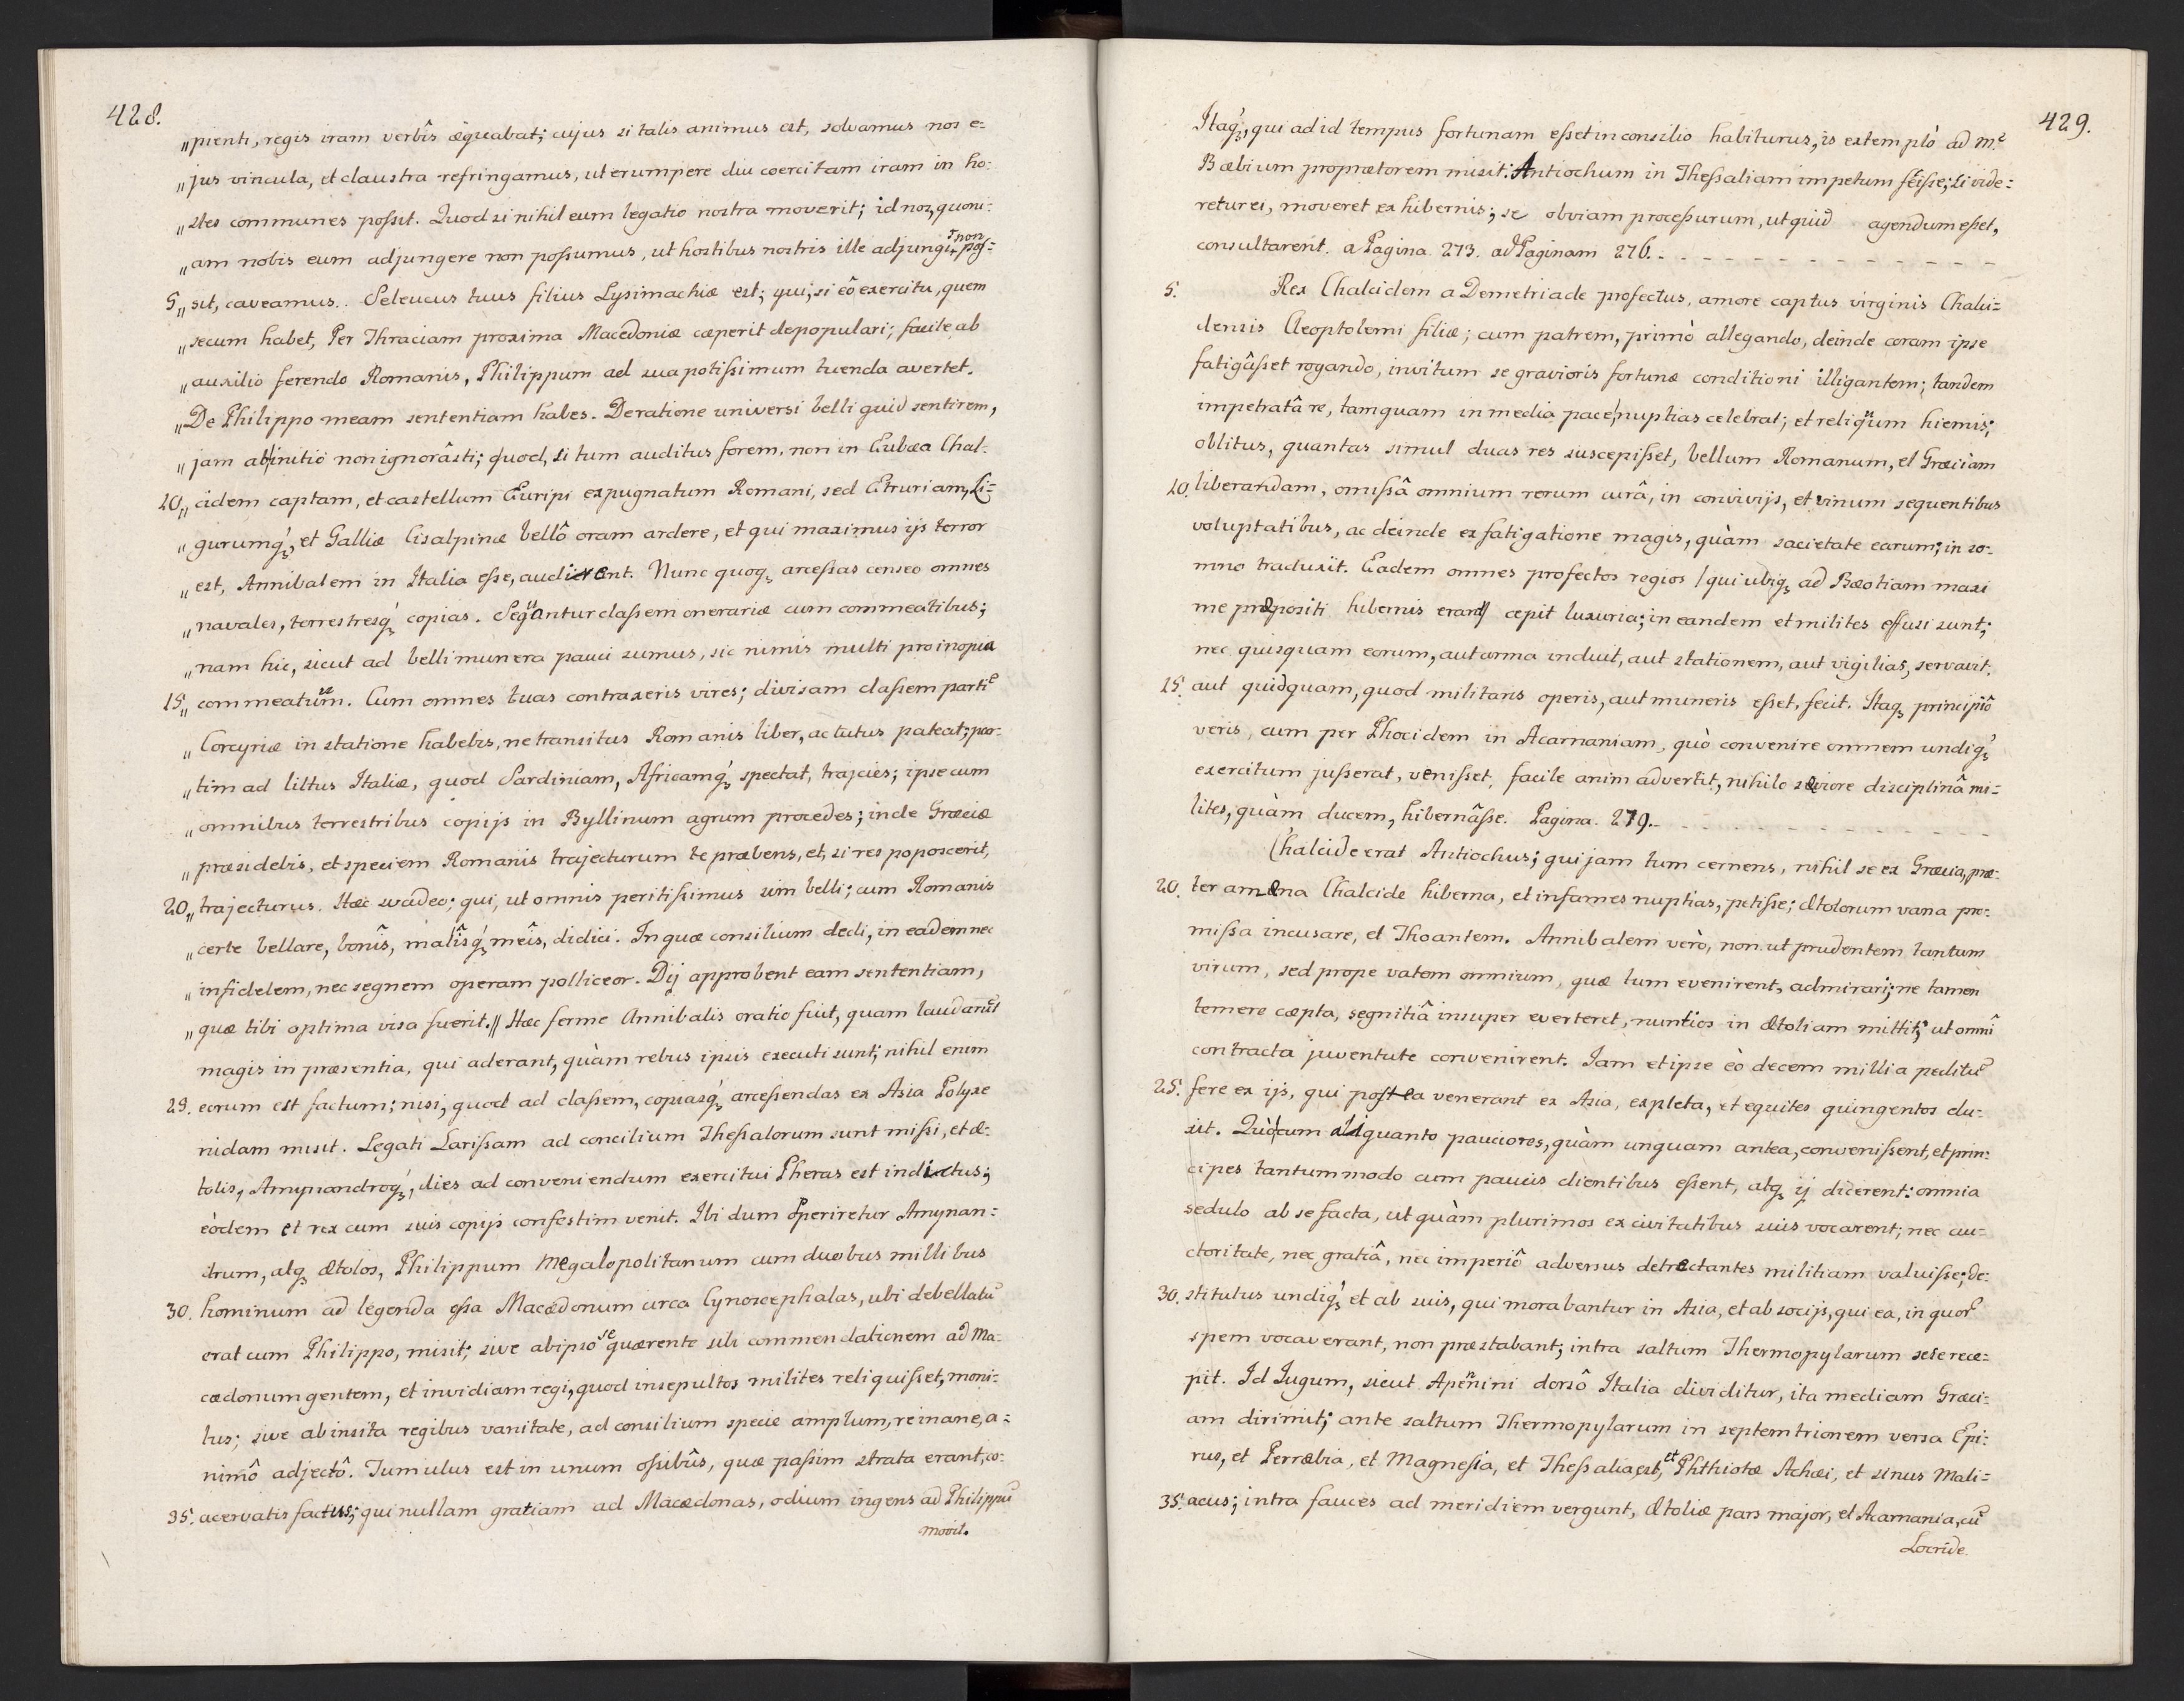 428.
„pienti, regis iram verbîs æquabat; cujus si talis animus est, solvamus nos e-
„jus vincula, et claustra refringamus, ut erumpere diu coercitam iram in ho-
„stes communes possit. Quod si nihil eum legatio nostra moverit; id nos, quoni-
„am nobis eum adjungere non possumus, ut hostibus nostris ille adjungi non pos=
5„ sit, caveamus. Seleucus tuus filius Lysimachiæ est; qui, si eô exercitu, quem
„secum habet, Per Thraciam proxima Macedoniæ cæperit depopulari; facile ab
„auxilio ferendo Romanis, Philippum ad sua potissimum tuenda avertet.
„De Philippo meam sententiam habes. De ratione universi belli quid sentirem,
„jam ab initio non ignorâsti; quod, si tum auditus forem, non in Eubæa Chal-
10„ cidem captam, et castellum Euripi expugnatum Romani, sed Etruriam, Li=
„gurumq́;, et Galliæ Cisalpinæ bellô oram ardere, et qui maximus ijs terror
„est, Annibalem in Italia esse, audirent. Nunc quoq; arcessas censeo omnes
„navales, terrestresq́; copias. Sequantur classem onerariæ cum commeatibus;
„nam hic, sicut ad belli munera pauci sumus, sic nimis multi pro inopia
15„ commeatuum. Cum omnes tuas contraxeris vires; divisam classem partim̃
„Corcyræ in statione habebis, ne transitus Romanis liber, ac tutus pateat; par-
„tim ad littus Italiæ, quod Sardiniam, Africamq́; spectat, trajcies; ipse cum
„omnibus terrestribus copijs in Byllinum agrum procedes; inde Græciæ
„præsidebis, et speciem Romanis trajecturum te præbens, et, si res poposcerit,
20„ trajecturus. Hæc suadeo; qui, ut omnis peritissimus sim belli; cum Romanis
„certe bellare, bonîs, malîsq́; meîs, didici. In quæ consilium dedi, in eadem nec
„infidelem, nec segnem operam polliceor. Dij approbent eam sententiam,
„quæ tibi optima visa fuerit.// Hæc ferme Annibalis oratio fuit, quam laudarũt
magis in præsentia, qui aderant, quàm rebus ipsis executi sunt; nihil enim
25. eorum est factum; nisi, quod ad classem, copiasq́; arcessendas ex Asia Polyxe
nidam misit. Legati Larissam ad concilium Thessalorum sunt missi, et æ-
tolis, Amynandroq́;, dies ad conveniendum exercitui Pheras est indictus;
eòdem et rex cum suis copijs confestim venit. Ibi dum operiretur Amynan=
drum, atq; Ætolos, Philippum Megalopolitanum cum duobus millibus
30. hominum ad legenda ossa Macædonum circa Cynoscephalas, ubi debellatũ
erat cum Philippo, misit; sive ab ipso se quærente sibi commendationem ad Ma-
cædonum gentem, et invidiam regi, quod insepultos milites reliquisset, moni-
tus; sive ab insita regibus vanitate, ad consilium specie amplum, re inane, a=
nimô adjectô. Tumulus est in unum ossibûs, quæ passim strata erant, co-
35. acervatis factus; qui nullam gratiam ad Macædonas, odium ingens ad Philippũ
movit.
429.
Itaq́;, qui ad id tempus fortunam esset in consilio habiturus, is extemplò ad M.
Bæbium proprætorem misit: Antiochum in Thessaliam impetum fecisse; si vide=
retur ei, moveret ex hibernis; se obviam processurum, ut quid agendum esset,
consultarent. a Pagina 273. ad Paginam 276. - - - - - - - - - - - - -
5. Rex Chalcidem a Demetriade profectus, amore captus virginis Chalci=
densis Cleoptolemi filiæ; cum patrem, primò allegando, deinde coram ipse
fatigâsset rogando, invitum se gravioris fortunæ conditioni illigantem; tandem
impetratâ re, tamquam in media pace, nuptias celebrat; et reliquum hiemis;
oblitus, quantas simul duas res suscepisset, bellum Romanum, et Græciam
10. liberandam, omissâ omnium rerum curâ, in convivijs, et vinum sequentibus
voluptatibus, ac deinde ex fatigatione magis, quàm sacietate earum; in so-
mno traduxit. Eadem omnes præfectos regios / qui ubiq; ad Bæotiam maxi
me præpositi hibernis erant/ cepit luxuria; in eandem et milites effusi sunt;
nec quisquam eorum, aut arma induit, aut stationem, aut vigilias, servavit.
15. aut quidquam, quod militaris operis, aut muneris esset, fecit. Itaq; principiô
veris, cum per Phocidem in Acarnaniam, quò convenire omnem undiq́;
exercitum jusserat, venisset, facile animadvertit, nihilo seviore disciplinâ mi=
lites, quàm ducem, hibernâsse. Pagina. 279. - - - - - - - - - - - -
Chalcide erat Antiochus; qui jam tum cernens, nihil se ex Græcia, præ-
20. ter amæna Chalcide hiberna, et infames nuptias, petisse; Ætolorum vana pro-
missa incusare, et Thoantem. Annibalem verò, non ut prudentem tantum
virum, sed prope vatem omnium, quæ tum evenirent, admirari; ne tamen
temere cæpta, segnitiâ insuper everteret, nuntios in Ætoliam mittit; ut omni
contracta juventute convenirent. Jam et ipse eò decem millia peditũ
25. fere ex ijs, qui postea venerant ex Asia, expleta, et equites quingentos du-
xit. Quò cum aliquanto pauciores, quàm unquam antea, convenissent, et prin-
cipes tantummodo cum paucis clientibus essent, atq; ij dicerent: omnia
sedulo ab se facta, ut quàm plurimos ex civitatibus suis vocarent; nec au-
ctoritate, nec gratiâ, nec imperiô adversus detrectantes militiam valuisse; de-
30. stitutus undiq́; et ab suis, qui morabantur in Asia, et ab socijs, qui ea, in quor̃
spem vocaverant, non præstabant; intra saltum Thermopylarum sese rece-
pit. Id Jugum, sicut Apennini dorsô Italia dividitur, ita mediam Græci-
am dirimit; ante saltum Thermopylarum in septemtrionem versa Epi-
rus, et Perræbia, et Magnesia, et Thessalia, est, et Phthiotæ Achæi, et sinus Mali=
35. acus; intra fauces ad meridiem vergunt, Ætoliæ pars major, et Acarnania, cũ
Locride.